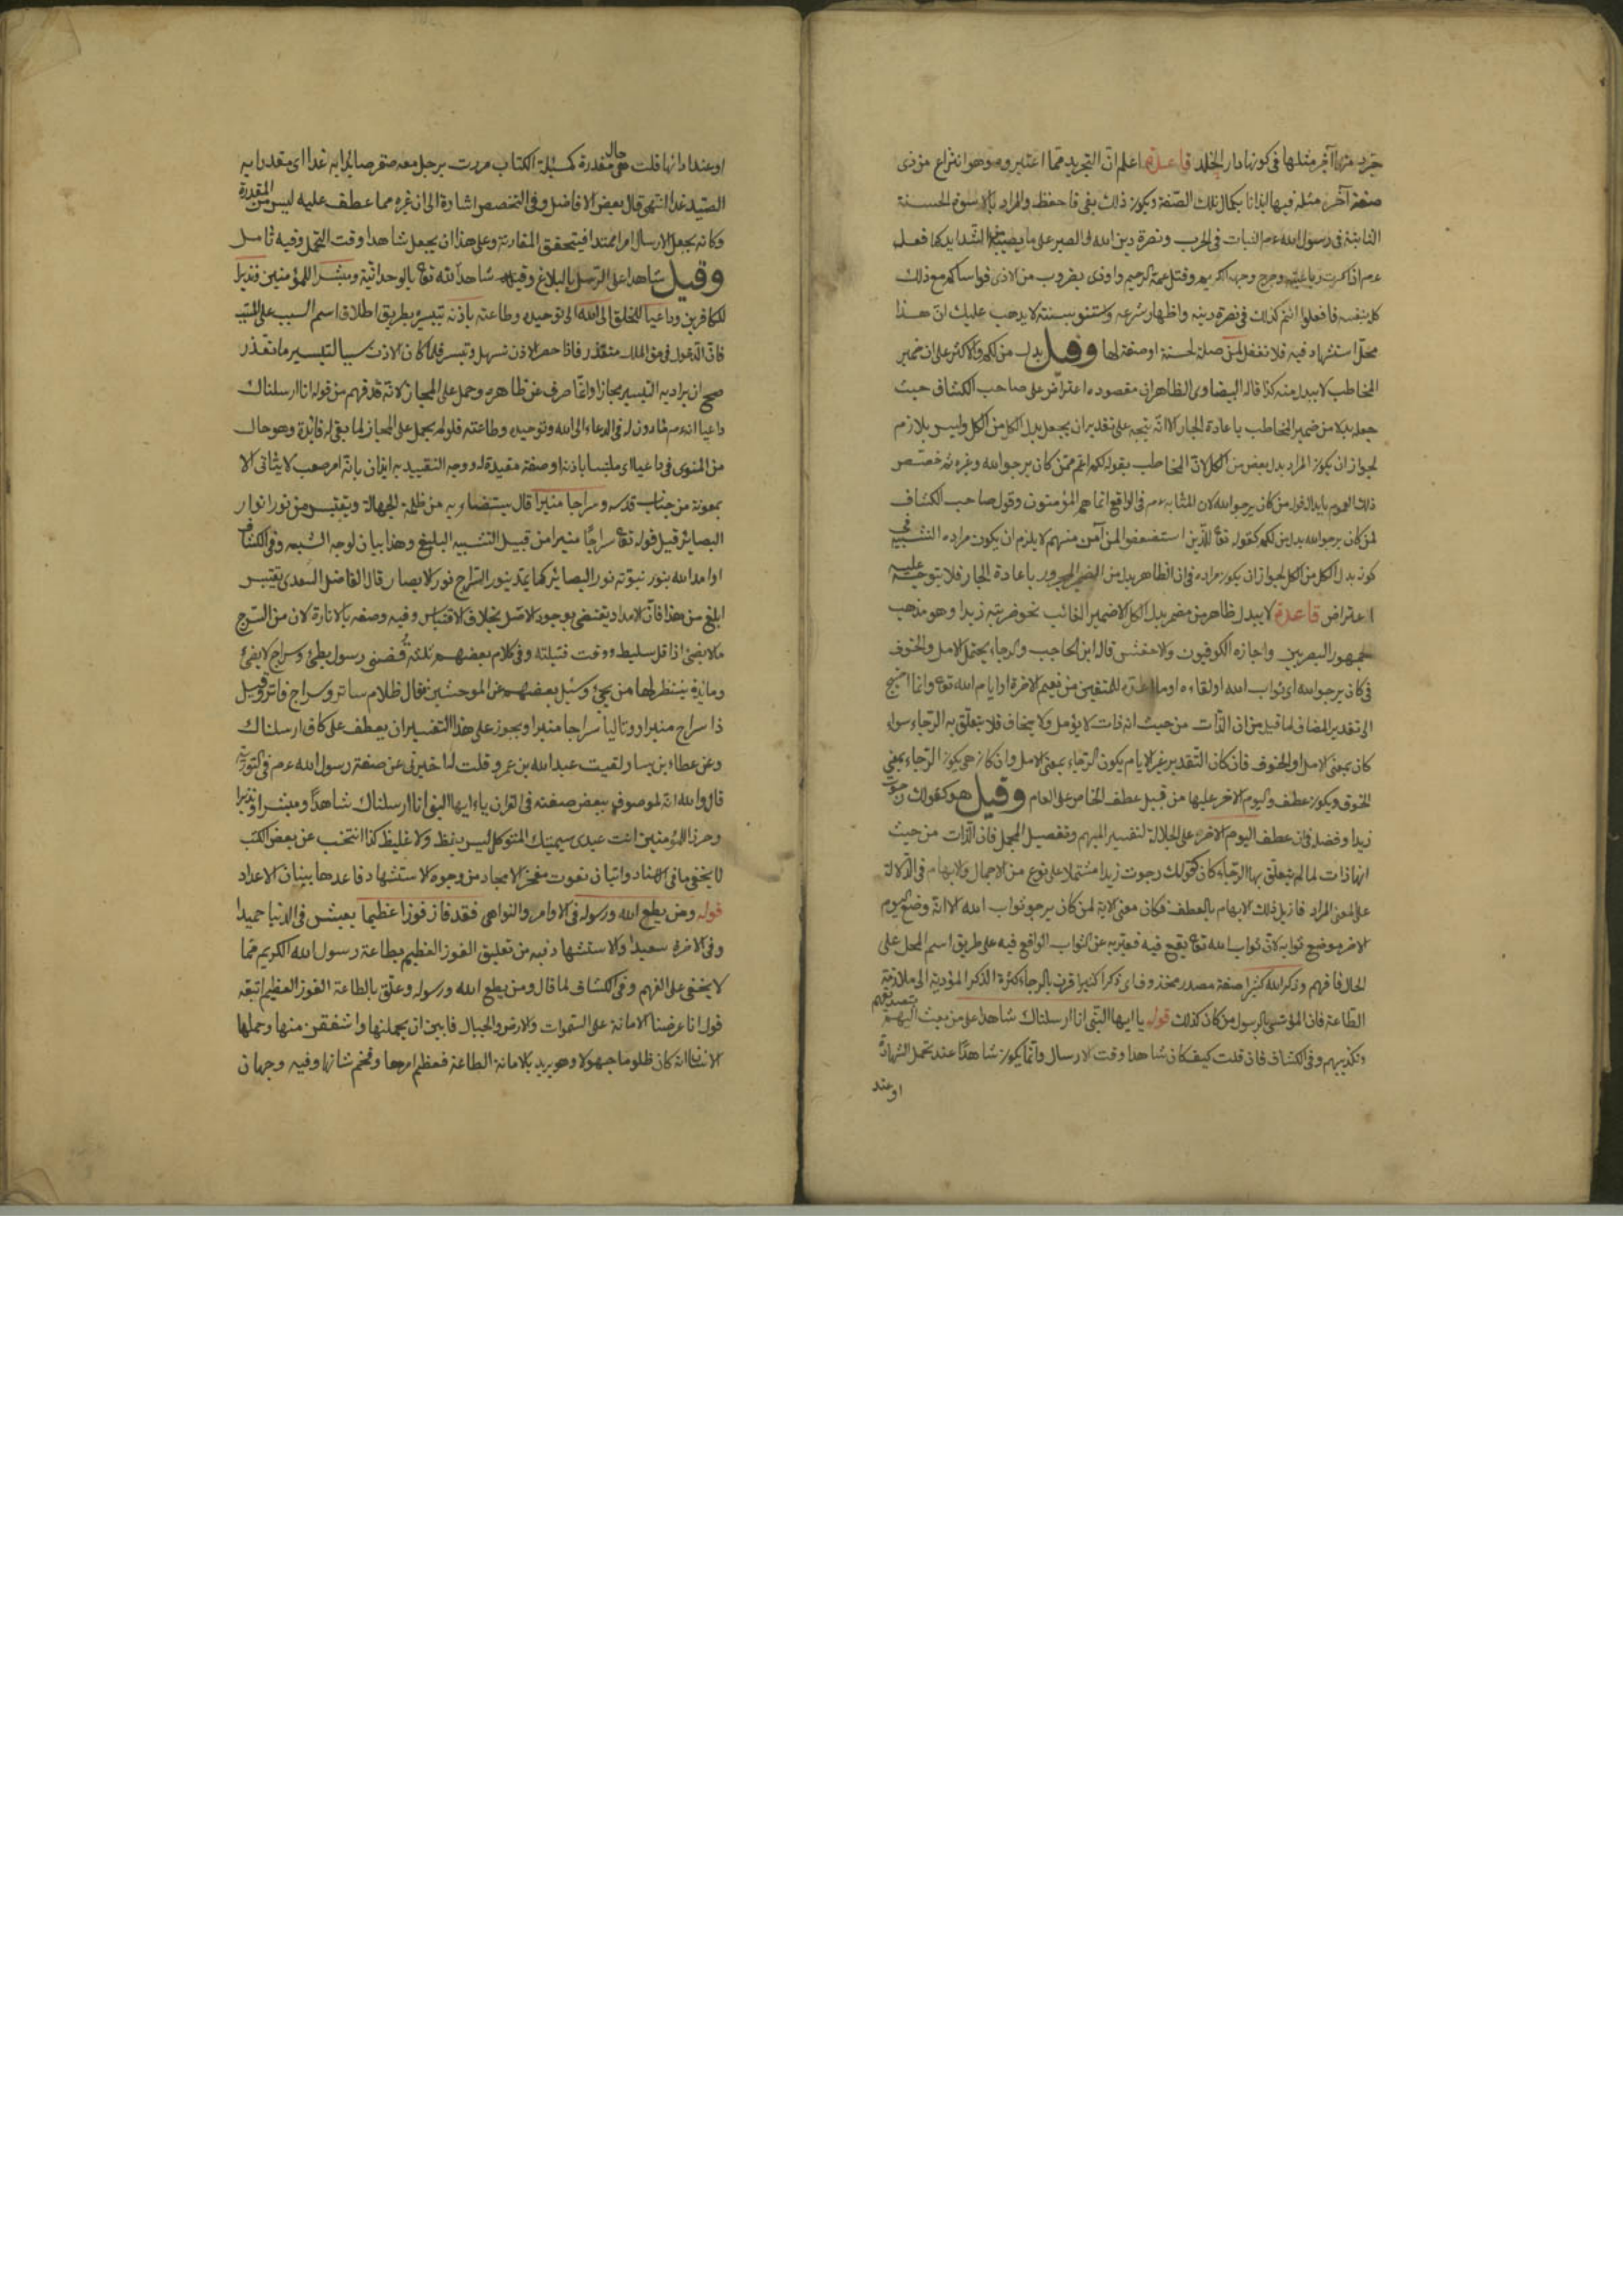 جرد منها آخر مثلها فى كونها دار الخلد قاعدة اعلم ان التجريد مما اعتبر وهو انتزاع من ذى
صفة آخر مثله فيها ايذانا بكمال تلك الصفة ويكون ذلك بفى فاحفظ والمراد بالاسوة الحسنة
الثابتة فى رسول الله عم الثبات فى الحرب ونصرة دين الله والصبر على ما يصيبه الشدايد كما فعل
عم اذ كسرت رباعيته وجرح وجهه الكريم وقتل عمه الرحيم واوذى بضروب من الاذى فواساكم مع ذلك
كله بنفسه فافعلوا انتم كذلك فى نصرة دينه واظهار شرعه واستنوا بسنته لا يذهب عليك ان هذا
محل استشهاد فيه فلا تغفل لمن صلة لحسنة او صفة لها وقيل بدل من لكم والاكثر على ان ضمير
المخاطب لا يبدل منه كذا قاله البيضاوى الظاهر ان مقصوده اعتراض على صاحب الكشاف حيث
جعله بدلا من ضمير المخاطب باعادة الجار الا انه يتجه على تقدير ان يجعل بدل الكل من الكل وليس بلازم
لجواز ان يكون المراد بدل بعض من الكل لان المخاطب بقوله لكم اعم ممن كان يرجو الله وغيره ثم خصص
ذلك العموم بابدال قوله من كان يرجو الله لان المتأسى به عم فى الواقع انما هم المؤمنون وقول صاحب الكشاف
لمن كان يرجو الله بدل من لكم كقوله تعا للذين استضعفوا لمن آمن منهم لا يلزم ان يكون مراده التشبيه فى
كونه بدل الكل من الكل لجواز ان يكون مراده فى ان الظاهر بدل من الضمير المجرور باعادة الجار فلا يتوجه عليه
الاعتراض قاعدة لا يبدل ظاهر من مضمر بدل الكل الا ضمير الغائب نحو ضربته زيدا وهو مذهب
جمهور البصريين واجازه الكوفيون والاخفش قال ابن الحاجب والرجاء يحتمل الامل والخوف
فى كان يرجو الله اى ثواب الله او لقاءه او ما اعده للمتقين من نعيم الاخرة او ايام الله تعا وانما احتيج
الى تقدير المضاف لما قيل من ان الذات من حيث انه ذات لا يؤمل ولا يخاف فلا يتعلق به الرجاء سواء
كان بمعنى الامل او الخوف فان كان التقدير غير الايام يكون الرجاء بمعنى الامل وان كان هى يكون الرجاء بمعنى
الخوف ويكون عطف واليوم الاخر عليها من قبيل عطف الخاص على العام وقيل هو كقولك رجوت
زيدا وفضله فان عطف اليوم الاخر على الجلالة لتفسير المبهم وتفصيل المجمل فان الذات من حيث
انها ذات لما لم يتعلق بها الرجاء كان كقولك رجوت زيدا مشتملا على نوع من الاجمال والابهام فى الدلالة
على المعنى المراد فازيل ذلك الابهام بالعطف فكان معنى الاية لمن كان يرجو ثواب الله الا انه وضع اليوم
الاخر موضع ثوابه لان ثواب الله تعا يقع فيه فعبر به عن الثواب الواقع فيه على طريق اسم المحل على
الحال فافهم وذكر الله كثيرا صفة مصدر محذوف اى ذكرا كثيرا قرن بالرجاء كثرة الذكر المؤدية الى ملازمة
الطاعة فان المؤتسى بالرسول من كان كذلك قوله يا ايها النبى انا ارسلناك شاهدا على من بعثت اليهم بتصديقهم
وتكذيبهم وفى الكشاف فان قلت كيف كان شاهدا وقت الارسال وانما يكون شاهدا عند تحمل الشهادة
او عند
او عند ادائها قلت هى حال مقدرة كمسئلة الكتاب مررت برجل معه صقر صائدا به غدا اى مقدرا به
الصيد غدا انتهى قال بعض الافاضل وفى التخصيص اشارة الى ان غيره مما عطف عليه ليس من المقدرة
وكانه يجعل الارسال امرا ممتدا فيتحقق المقارنة وعلى هذا ان يجعل شاهدا وقت التحمل وفيه تأمل
وقيل شاهدا على الرسل بالبلاغ وقيل شاهدا لله تعا بالوحدانية ومبشرا للمؤمنين ونذيرا
للكافرين وداعيا للخلق الى الله الى توحيده وطاعته باذنه بتيسيره بطريق اطلاق اسم السبب على المسبب
فان الدخول فى حق المالك متعذر فاذا حصل الاذن تسهل وتيسر فلما كان الاذن سببا لتيسير ما تعذر
صح ان يراد به التيسير مجازا وانما صرف عن ظاهره وحمل على المجاز لانه قد فهم من قوله انا ارسلناك
داعيا انه عم مأذون له فى الدعاء الى الله وتوحيده وطاعته فلو لم يحمل على المجاز لما بقى له فائدة وهو حال
من المنوى فى داعيا اى ملتبسا باذنه او صفة مقيدة له ووجه التقييد به ايذان بانه امر صعب لا يتأتى الا
بمعونة من جناب قدسه وسراجا منيرا قال يستضاء به من ظلمة الجهالة ويقتبس من نوره انوار
البصائر قيل قوله تعا سراجا منيرا من قبيل التشبيه البليغ وهذا بيان لوجه الشبه وفى الكشاف
او امد الله بنور نبوته نور البصائر كما يمد بنور السراج نور الابصار قال الفاضل السعدى يقتبس
ابلغ من هذا فان الامداد يقتضى بوجود الاصل بخلاف الاقتباس وفيه وصفه بالانارة لان من السرج
ما لا يضئ اذا قل سليطه ودقت فتيلته وفى كلام بعضهم ثلثة تضنى رسول بطئ وسراج لا يضئ
ومائدة ينتظر لها من يجئ وسئل بعضهم عن الموحشين فقال ظلام ساتر وسراج فاتر وقيل
ذا سراج منير او وتاليا سراجا منيرا ويجوز على هذا التفسير ان يعطف على كاف ارسلناك
وعن عطاء بن يسار لقيت عبد الله بن عمرو قلت له اخبرنى عن صفة رسول الله عم فى التورية
قال والله انه لموصوف ببعض صفته فى القران ياءايها النبى انا ارسلناك شاهدا ومبشرا ونذيرا
وحرز المؤمنين انت عبدى سميتك المتوكل ليس بفظ ولا غليظ كذا انتخب عن بعض الكتب
لا يخفى ما فى الاسناد واتيان نعوت مفخر الامجاد من وجوه الاستشهاد فاعدها ببنان الاعداد
قوله ومن يطع الله ورسوله فى الاوامر والنواهى فقد فاز فوزا عظيما يعيش فى الدنيا حميدا
وفى الاخرة سعيدا والاستشهاد فيه من تعليق الفوز العظيم بطاعة رسول الله الكريم مما
لا يخفى على الفهم وفى الكشاف لما قال ومن يطع الله ورسوله وعلق بالطاعة الفوز العظيم اتبعه
قوله انا عرضنا الامانة على السموات والارض والجبال فابين ان يحملنها واشفقن منها وحملها
الانسان انه كان ظلوما جهولا وهو يريد بالامانة الطاعة فعظم امرها وفخم شانها وفيه وجهان